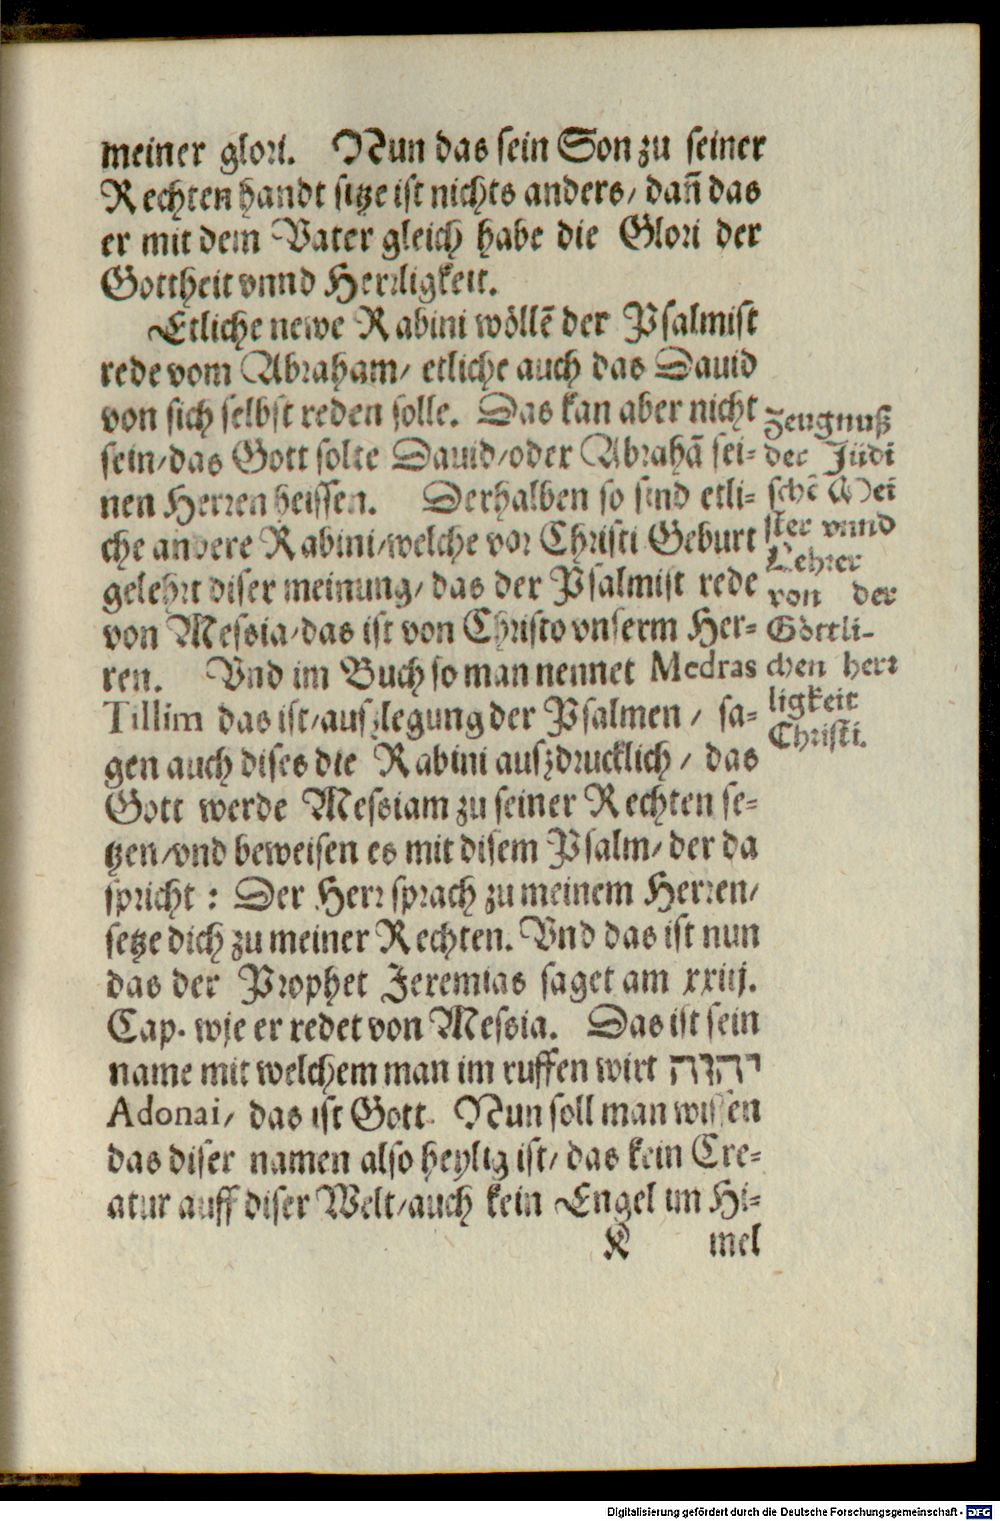 meiner glori. Nun das sein Son zu seiner
Rechten handt sitze ist nichts anders/ dañ das
er mit dem Vater gleich habe die Glori der
Gottheit vnnd Herrligkeit.
Etliche newe Rabini wöllẽ der Psalmist
rede vom Abraham/ etliche auch das Dauid
von sich selbst reden solle. Das kan aber nicht
sein/das Gott solte Dauid/oder Abrahã sei-
nen Herren heissen. Derhalben so sind etli-
che andere Rabini/welche vor Christi Geburt
gelehrt diser meinung/ das der Psalmist rede
von Messia/das ist von Christo vnserm Her-
ren. Vnd im Buch so man nennet Medras
Tillim das ist/auszlegung der Psalmen / sa-
gen auch dises die Rabini auszdrucklich / das
Gott werde Messiam zu seiner Rechten se-
tzen/vnd beweisen es mit disem Psalm/ der da
spricht : Der Herr sprach zu meinem Herren/
setze dich zu meiner Rechten. Vnd das ist nun
das der Prophet Jeremias saget am xxiij.
Cap. wie er redet von Messia. Das ist sein
name mit welchem man im ruffen wirt יהוה
Adonai/ das ist Gott. Nun soll man wissen
das diser namen also heylig ist/ das kein Cre-
atur auff diser Welt/auch kein Engel im Hi-
K mel
Zeugnuß
der Jüdi
schẽ Mei
ster vnnd
Lehrer
von der
Göttli-
chen herr
ligkeit
Christi.
Digitalisierung gefördert durch die Deutsche Forschungsgemeinschaft - DFG